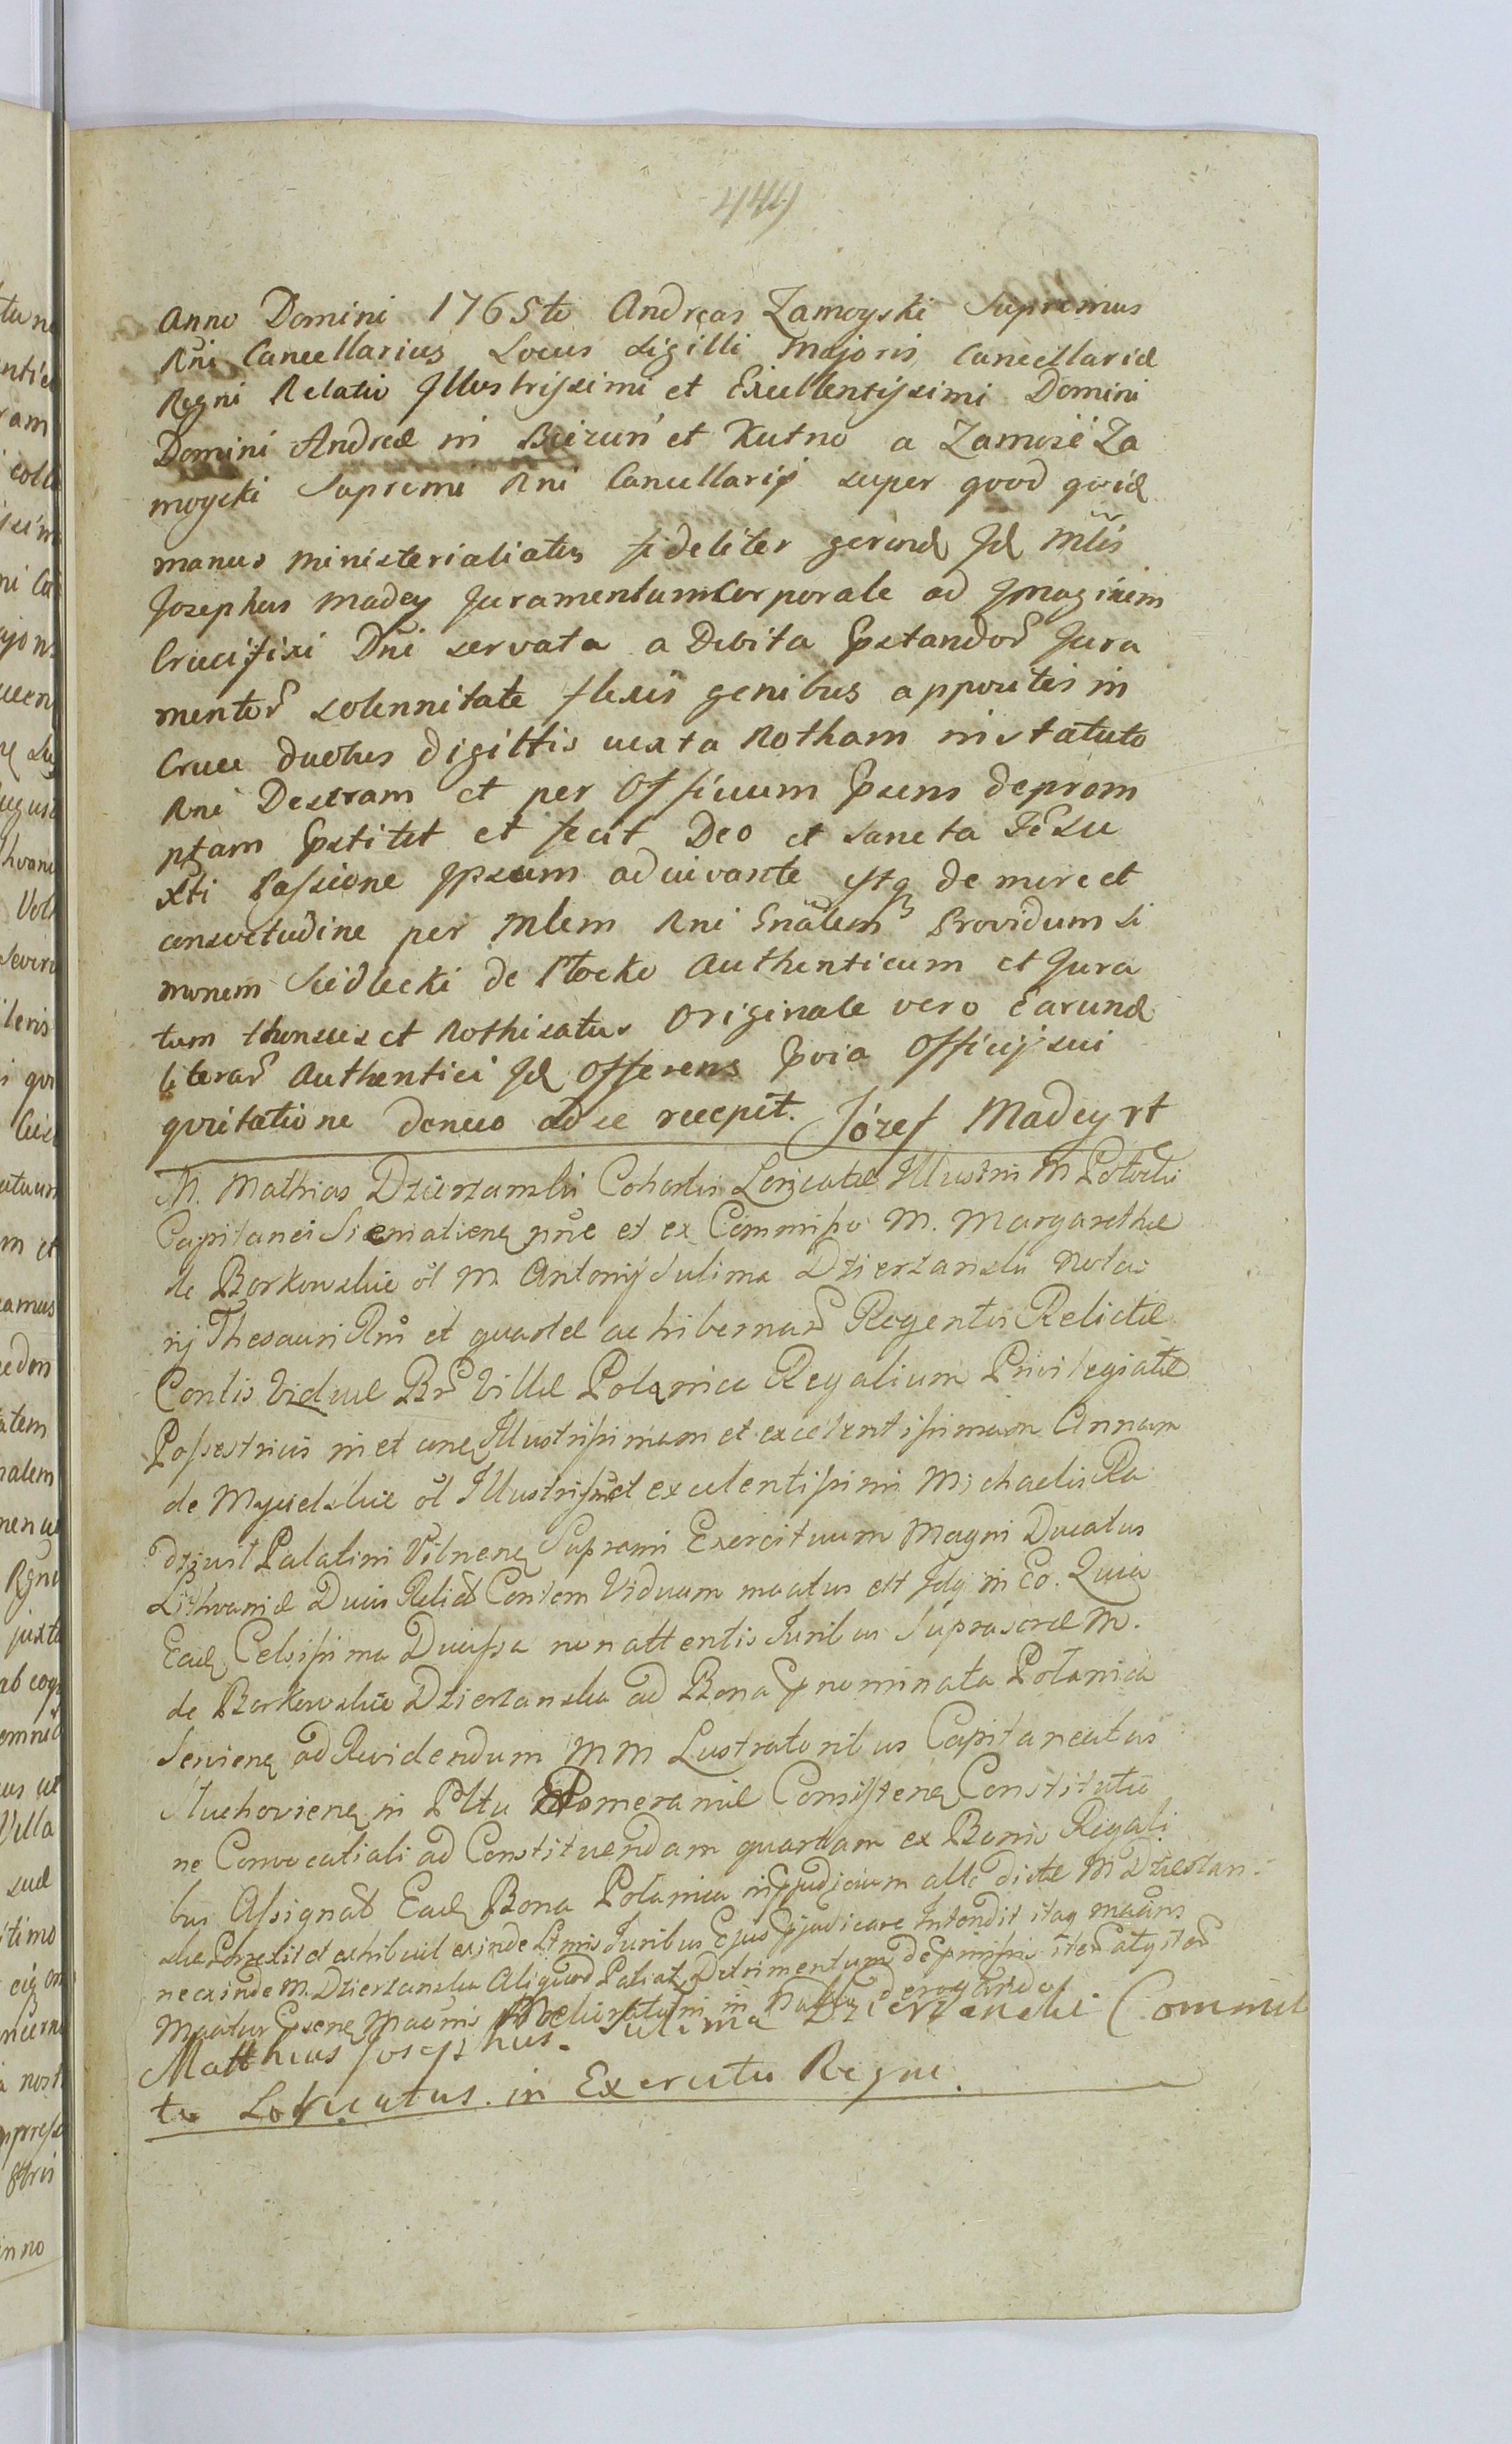 449
Anno Domini 1765to Andreas Zamoyski Supremus
Rni Cancellarius Locus Sigilli Majoris Cancellariæ
Regni Relatio Jllustrissimi et Excellentissimi Domini
Domini Andreæ in Biezuń et Kutno a Zamość Za
moyski Supremi Rni Cancellarij super quod quid
manus ministerialiatus fideliter gerend Jd Mlis
Josephus Madey Juramentum Corporale ad Jmaginem
Crucifixi Dni servata a Debita Pstandor Jura
mentor solennitate flexis genibus appositis in
Cruce duobus digittis iuxta Rotham in statuto
Rni Descram et per Officium Psens deprom
ptam Pstitit et fecit Deo et sancta Jesu
Xti Passione Jpsum adiuvante Jtq de more et
consvetudine per Mlem Rni Gnalem Providum Si
monem Siedlecki de Płocko Authenticum et Jura
tum thonsus et Rothisatus Originale vero Earund
literar Authentici Jd Offerens Pvia Officij sui
quitatione denuo ad se recepit. Józef Madey rt
M. Mathias Dzierzanski Cohortis Loricatæ Jllustris M Potocki
Capitanei Siematiens pnc et ex Commisso M. Margarethæ
de Borkowskie ol M. Antonij Sulima Dzierzanski Nota
rij Thesauri Rni et quartæ ac hibernar Regentis Relictæ
Contis Viduæ Br Villæ Polanica Regalium Privilegiatæ
Possestricis in et cona Jllustrissimam et excelentissimam Annam
de Mycielskie ol Jllustrissi et excelentissimi Michaelis Ra
dziwił Palatini Vilnens Supremi Exercituum Magni Ducatus
Lithvaniæ Ducis Relict Contem Viduam mactus est Jdq in Eo. Quia
Ead Celsissima Ducissa non attentis Juribus Suprascræ M.
de Borkowskie Dzierzanska ad Bona Pnominata Polanica
Serviens ad Revidendum MM Lustratoribus Capitaneatus
Stuchoviens in Pttu Pomeraniæ Consistens Constitutio
ne Convocatiali ad Constituendam quartam ex Bonis Regali
bus Assignat Ead Bona Polanica in Pjudicium alte dictæ M Dzierzan
skie Porrexit et exhibuit exinde Juribus Ejus Pjudicare Jntendit itaq
ne exinde M. Dzierzanska Aliquod Patiat Detrimentum de
Matthius Josephus. Sulima Dzierzanski Commili
to Loricatus. in Exercitu Regni.